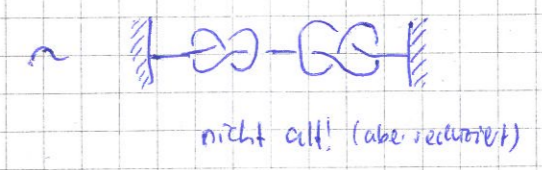 ~
nicht alt! (aber reduziert)